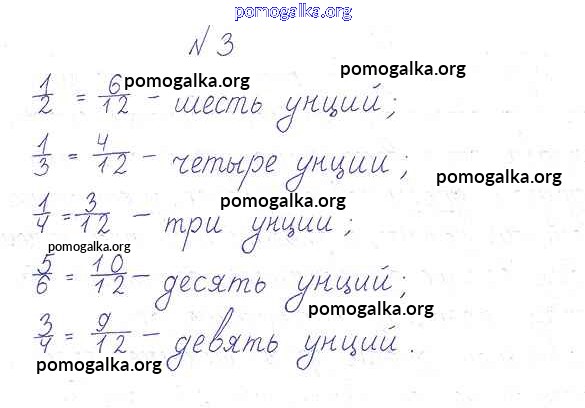 pomogalka.org
N 3
pomogalka.org
1/2 = 6/12 - шесть унций;
pomogalka.org
1/3 = 4/12 - четыре унции;
pomogalka.org
1/4 = 3/12 - три унции;
pomogalka.org
pomogalka.org
5/6 = 10/12 - десять унций;
pomogalka.org
3/4 = 9/12 - девять унций.
pomogalka.org